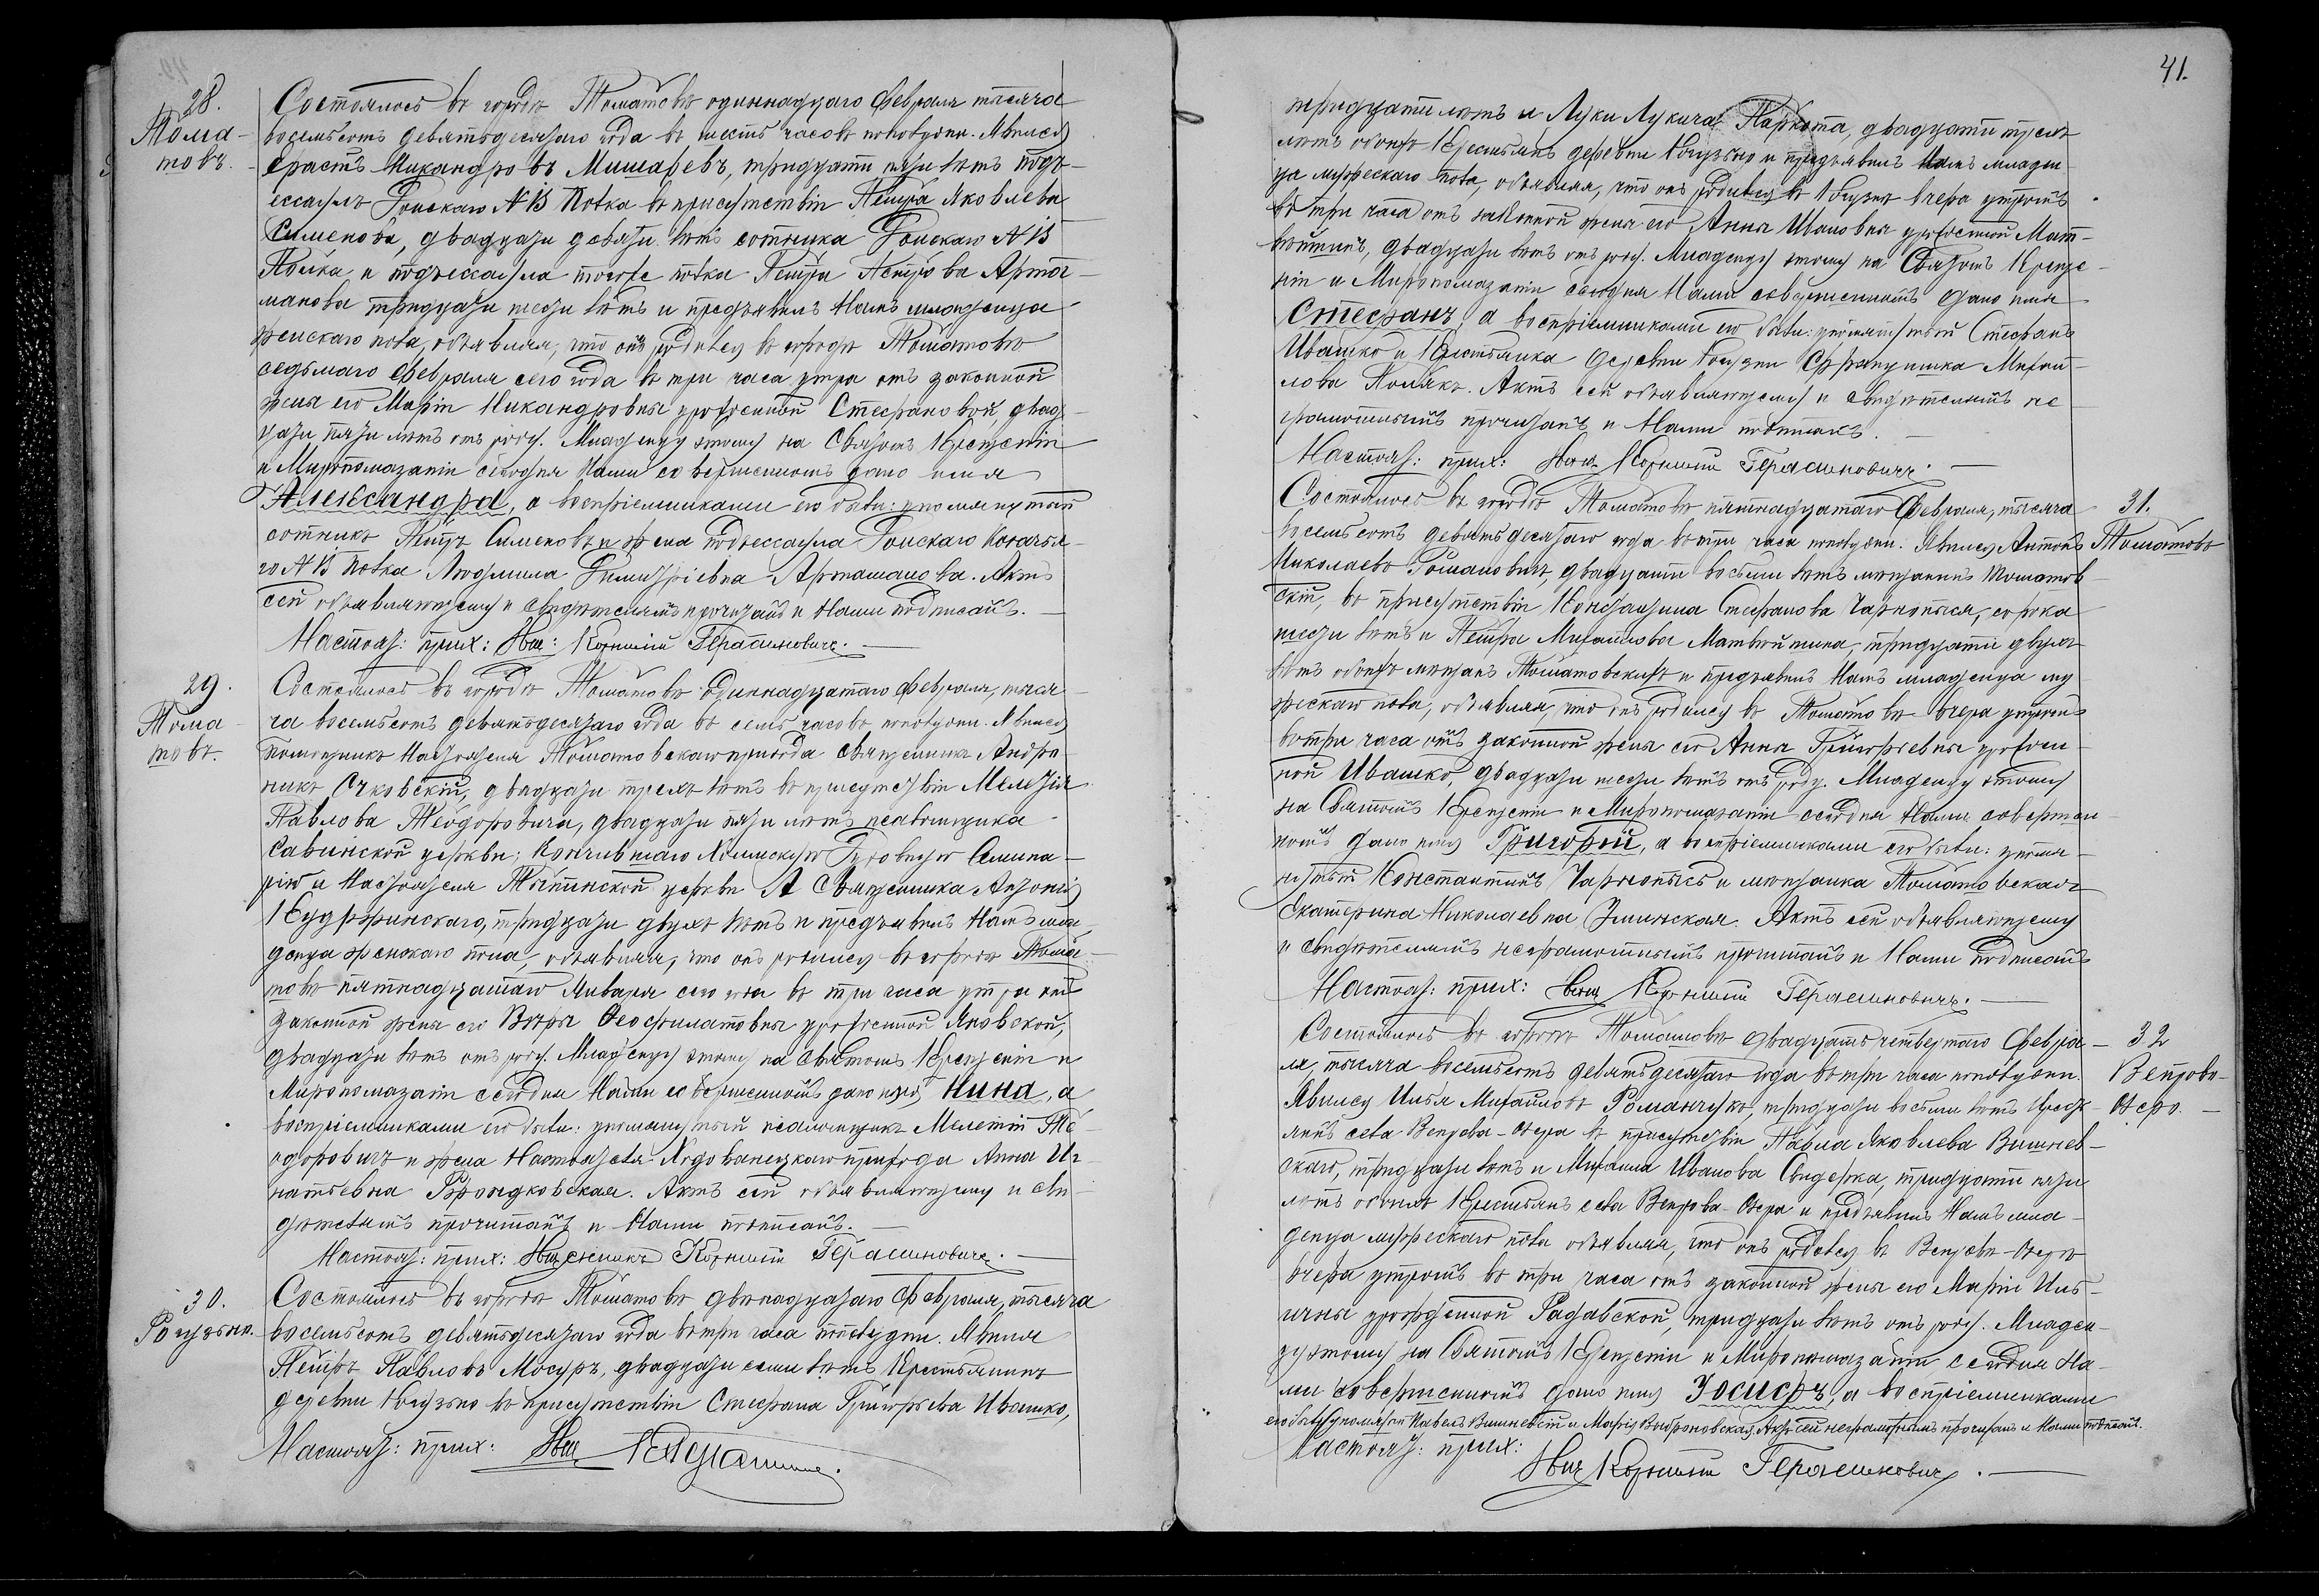 41.
28.
Тома-
товъ.
Состоялось въ городѣ Томашовѣ одиннадцаго февраля тысяча
восемьсотъ девятьдесятаго года въ шесть часовъ пополудни. Явился
Ерастъ Никандровъ Мишаревъ, тридцати пяти лѣтъ подъ-
ессаулъ Донскаго N 15 Полка въ присутствіи Петра Яковлева
Сименова, двадцати девяти лѣтъ сотника Донскаго N 15
Полка и подъессаула тогоже полка Петра Петрова Арта-
манова тридцати шести лѣтъ и предъявилъ Намъ младенца
женскаго пола, объявляя, что онъ родился въ городѣ Томашовѣ
седьмаго февраля сего года въ три часа утра отъ законной
жены его Маріи Никандровны урожденной Стефановой, двад-
цати пяти лѣтъ отъ роду. Младенцу этому на Святомъ Крещеніи
и Миропомазаніи сегодня Нами совершенномъ дано имя
Александра, а воспріемниками его были: упомянутый
сотникъ Петръ Сименовъ и жена подъессаула Донскаго Казачья-
го N 15 Полка Людмила Димитріевна Арташанова. Актъ
сей объявляющему и свидѣтелямъ прочитанъ и Нами подписанъ.
Настоят: прих: Свящ: Корнилій Герасимовичъ.
29.
Тома
товъ.
Состоялось въ городѣ Томашовѣ одиннадцатаго февраля, тыся-
ча восемьсотъ девятьдесятаго года въ семь часовъ пополудни. Явился
помощникъ Настоятеля Томашовскаго прихода священника Андро-
никъ Очковскій, двадцати трехъ лѣтъ въ присутствіи Мелетія
Павлова Теодоровича, двадцати пяти лѣтъ псаломщика
Савинской церкви, кончившаго Холмскую Духовную Семина-
рію и Настоятеля Тыпинской церкви Священника Антонія
Кудрринскаго, тридцати двухъ лѣтъ и предъявилъ Намъ мла-
денца женскаго пола, объявляя, что онъ родился въ городѣ Тома-
товѣ пятнадцатаго Января сего года въ три часа утра отъ
законной жены его Вѣры Ѳеофилатовны урожденной Яновской,
двадцати лѣтъ отъ роду. Младенцу этому на святомъ Крещеніи и
Миропомазаніи сегодня Нами совершенномъ дано имя Нина, а
воспріемниками его были: упомянутый псаломщикъ Мелетій Те-
одоровичъ и жена Настоятеля Ходованецкаго прихода Анна Иг-
натьевна Грондковская. Актъ сей объявляющему и сви-
дѣтелямъ прочитанъ и Нами подписанъ.
Настоят: прих: Священникъ Корнилій Герасимовичъ.
30.
Рогузьно.
Состоялось въ городѣ Томашовѣ двѣнадцатаго февраля, тысяча
восемьсотъ девятьдесятаго года въ три часа пополудни. Явился
Петръ Павловъ Мосуръ, двадцати семи лѣтъ Крестьянинъ
деревни Рогузьно въ присутствіи Стефана Григорьева Ивашко,
Настоят: прих: Свящ
тридцати лѣтъ и Луки Лукича Паркота, двадцати трехъ
лѣтъ обоихъ Крестьянъ деревни Рогузьно и предъявилъ Намъ младен-
ца мужескаго пола, объявляя, что онъ родился въ Рогузнѣ вчера утромъ
въ три часа отъ законной жены его Анны Ивановны урожденной Мат-
войтинъ, двадцати лѣтъ отъ роду. Младенцу этому на Святомъ Креще-
ніи и Миропомазаніи сегодня Нами совершенномъ дано имя
Стефанъ, а воспріемниками его были: упомянутый Стефанъ
Ивашко и Крестьянка деревни Рогузни Офранушка Михай-
лова Полякъ. Актъ сей объявляющему и свидѣтелямъ не
грамотнымъ прочитанъ и Нами подписанъ.
Настоят: прих: Свящ Корнилій Герасимовичъ.
31.
Томашовъ
Состоялось въ городѣ Томашовѣ пятнадцатаго Февраля, тысяча
восемьсотъ девятьдесятаго года въ три часа пополудни. Явился Антонъ
Николаевъ Романовичъ, двадцати восьми лѣтъ мѣщанинъ Томашов-
скій, въ присутствіи Константина Стефанова Чарнопыся, сорока
шести лѣтъ и Петра Михайлова Матвѣйшина, тридцати двухъ
лѣтъ обоихъ мѣщанъ Томашовскихъ и предъявилъ Намъ младенца му
жескаго пола, объявляя, что онъ родился въ Томашовѣ вчера утромъ
въ три часа отъ законной жены его Анны Григорьевны урожден-
ной Ивашко, двадцати шести лѣтъ отъ роду. Младенцу этому
на Святомъ Крещеніи и Миропомазаніи сегодня Нами совершен-
номъ дано имя Григорій, а воспріемниками его были: упомя-
нутый Константинъ Чарнопысь и мѣщанка Томашовская
Екатерина Николаевна Зминская. Актъ сей объявляющему
и свидѣтелямъ неграмотнымъ прочитанъ и Нами подписанъ
Настоят: прих: Свящ Корнилій Герасимовичъ.
32
Вепрово-
Озеро.
Состоялось въ городѣ Томашовѣ двадцать четвертаго Февра-
ля, тысяча восемьсотъ девятьдесятаго года въ три часа пополудни.
Явился Илья Михайловъ Романчукъ, тридцати восьми лѣтъ Кресть-
янинъ села Вепрова-Озера въ присутствіи Павла Яковлева Вишнев-
скаго, тридцати лѣтъ и Михаила Иванова Свидерка, тридцати пяти
лѣтъ обоихъ Крестьянъ села Вепрова-Озера и предъявилъ Намъ мла-
денца мужескаго пола объявляя, что онъ родился въ Вепровѣ-Озерѣ
вчера утромъ въ три часа отъ законной жены его Маріи Иль-
ичны урожденной Радавской, тридцати лѣтъ отъ роду. Младен-
цу этому на Святомъ Крещеніи и Миропомазаніи сегодня На-
ми совершенномъ дано имя Іосифъ, а воспріемниками
его были: упомянутый Павелъ Вишневскій и Марія Актъ сей неграмотнымъ прочитанъ и Нами подписанъ.
Настоят: прих:
Свящ Корнилій Герасимовичъ.